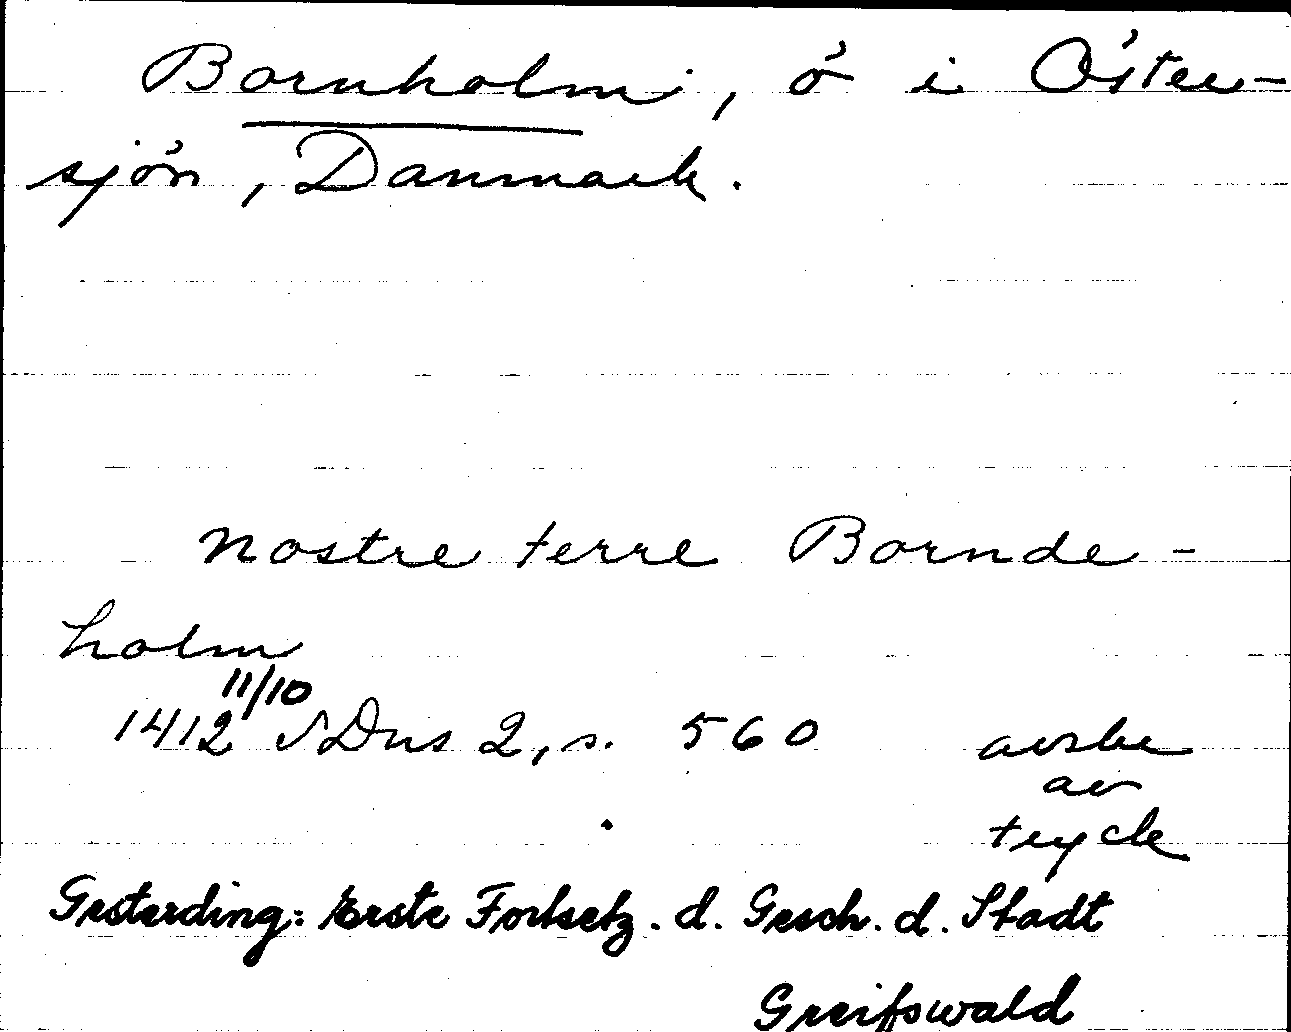 Bornholm, ö i Öster-
sjön, Danmark.
nostre terre Bornde-
holm
1412 11/10 SDns 2, s. 560 avskr
av
tryck
Gesterding: Erste Fortsetz. d. Gesch. d. Stadt
Greifswald